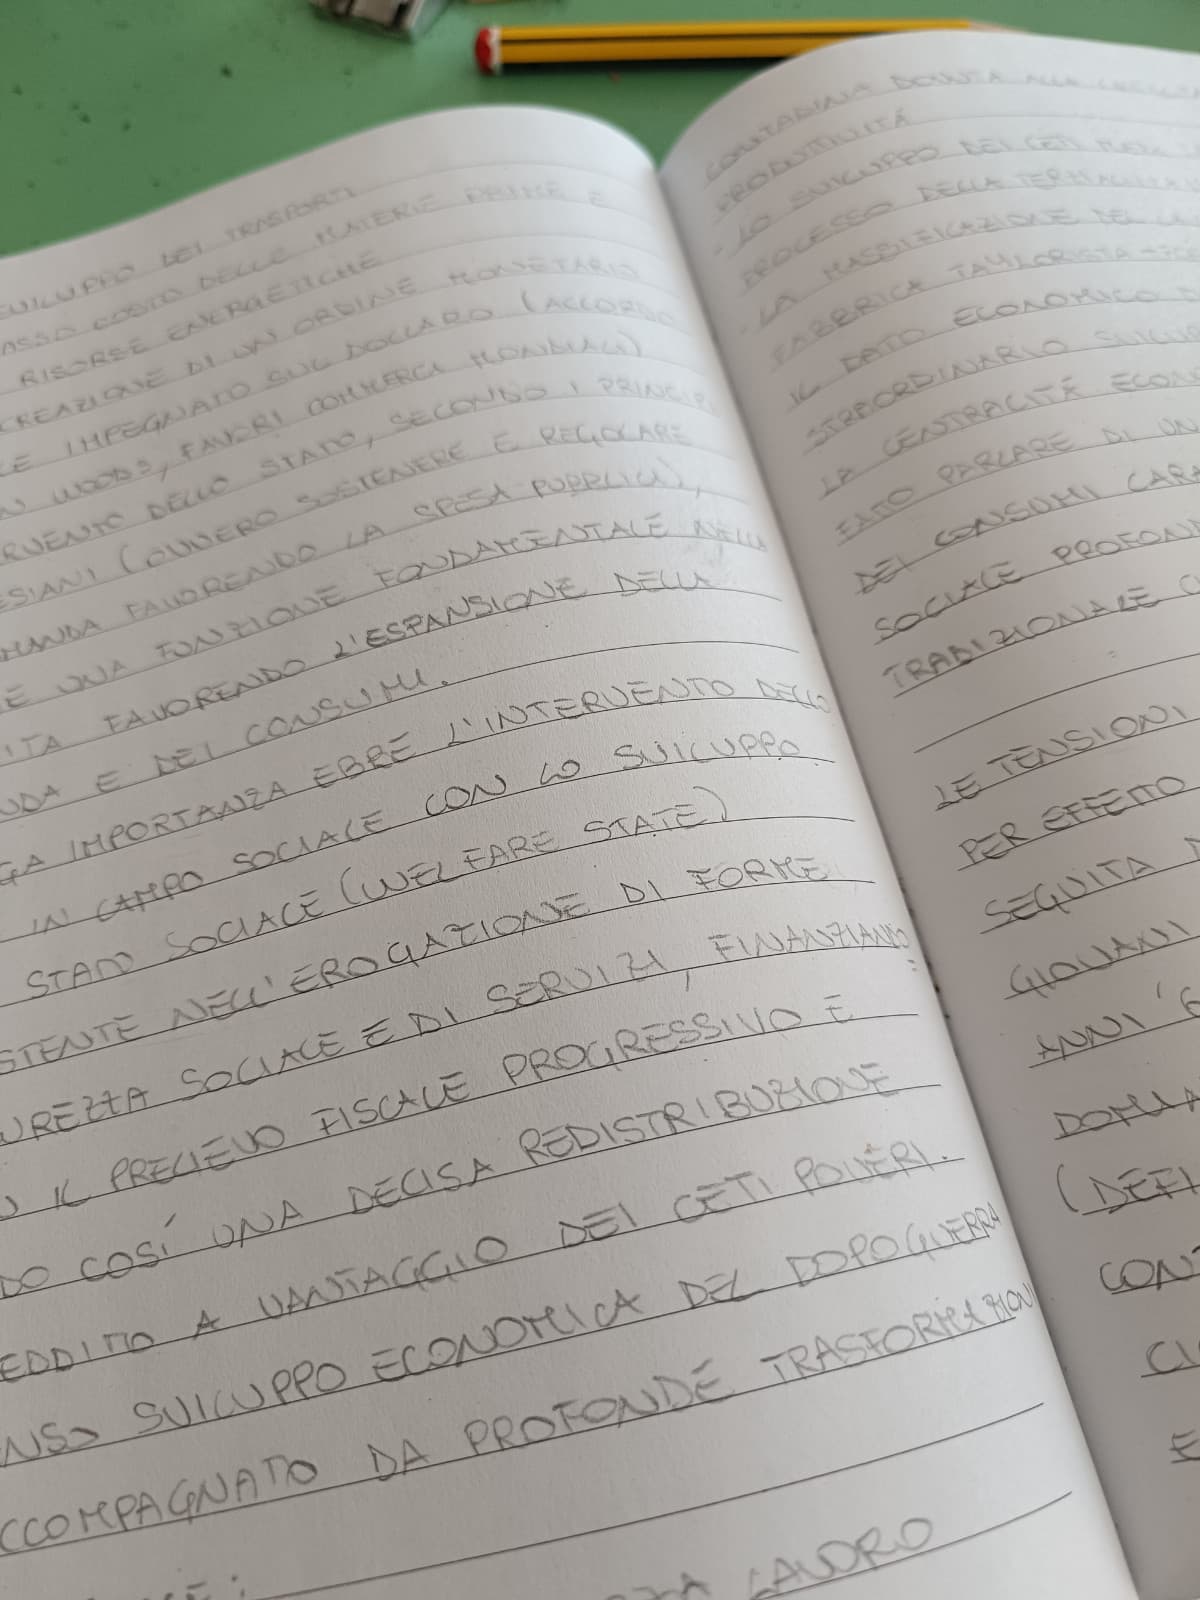 SVILUPPO DEI TRASPORTI
ASSO COSTO DELLE MATERIE PRIME E
RISORSE ENERGETICHE
CREAZIONE DI UN ORDINE MONETARIO
LE IMPEGNATO SUL DOLLARO (ACCORDO
N WOODS, FAVORÌ COMMERCI MONDIALI)
RVENTO DELLO STATO, SECONDO I PRINCIPI
ESIANI (OVVERO SOSTENERE E REGOLARE
MANDA FAVORENDO LA SPESA PUBBLICA),
E UNA FUNZIONE FONDAMENTALE NELLA
ITA FAVORENDO L'ESPANSIONE DELLA
NDA E DEI CONSUMI.
GA IMPORTANZA EBBE L'INTERVENTO DELLO
IN CAMPO SOCIALE CON LO SVILUPPO
STATO SOCIALE (WELFARE STATE)
STENTE NELL'EROGAZIONE DI FORME
UREZZA SOCIALE E DI SERVIZI, FINANZIANO
IL PRELIEVO FISCALE PROGRESSIVO E
DO COSÍ UNA DECISA REDISTRIBUZIONE
EDDITO A VANTAGGIO DEI CETI POVERI.
ENSO SVILUPPO ECONOMICA DEL DOPOGUERRA
CCOMPAGNATO DA PROFONDE TRASFORMAZIONI
LAVORO
CONTADINA DOVUTA ALLA
PRODUTTIVITÀ
- LO SVILUPPO DEI CETI MEDI
PROCESSO DELLA
- LA MASSIFICAZIONE DEL
FABBRICA TAYLORISTA
IL DATO ECONOMICO
STRAORDINARIO SVILUP
LA CENTRALITÀ ECONO
FATTO PARLARE DI UN
DEI CONSUMI CARA
SOCIALE PROFON
TRADIZIONALE C
LE TENSIONI
PER EFFETTO
SEGUITA D
GIOVANI
ANNI '6
DOMA
(DEFI
CONT
CU
E